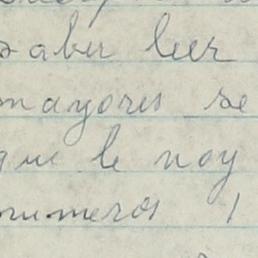 saber leer
mayores se
que le noy
numeros 1